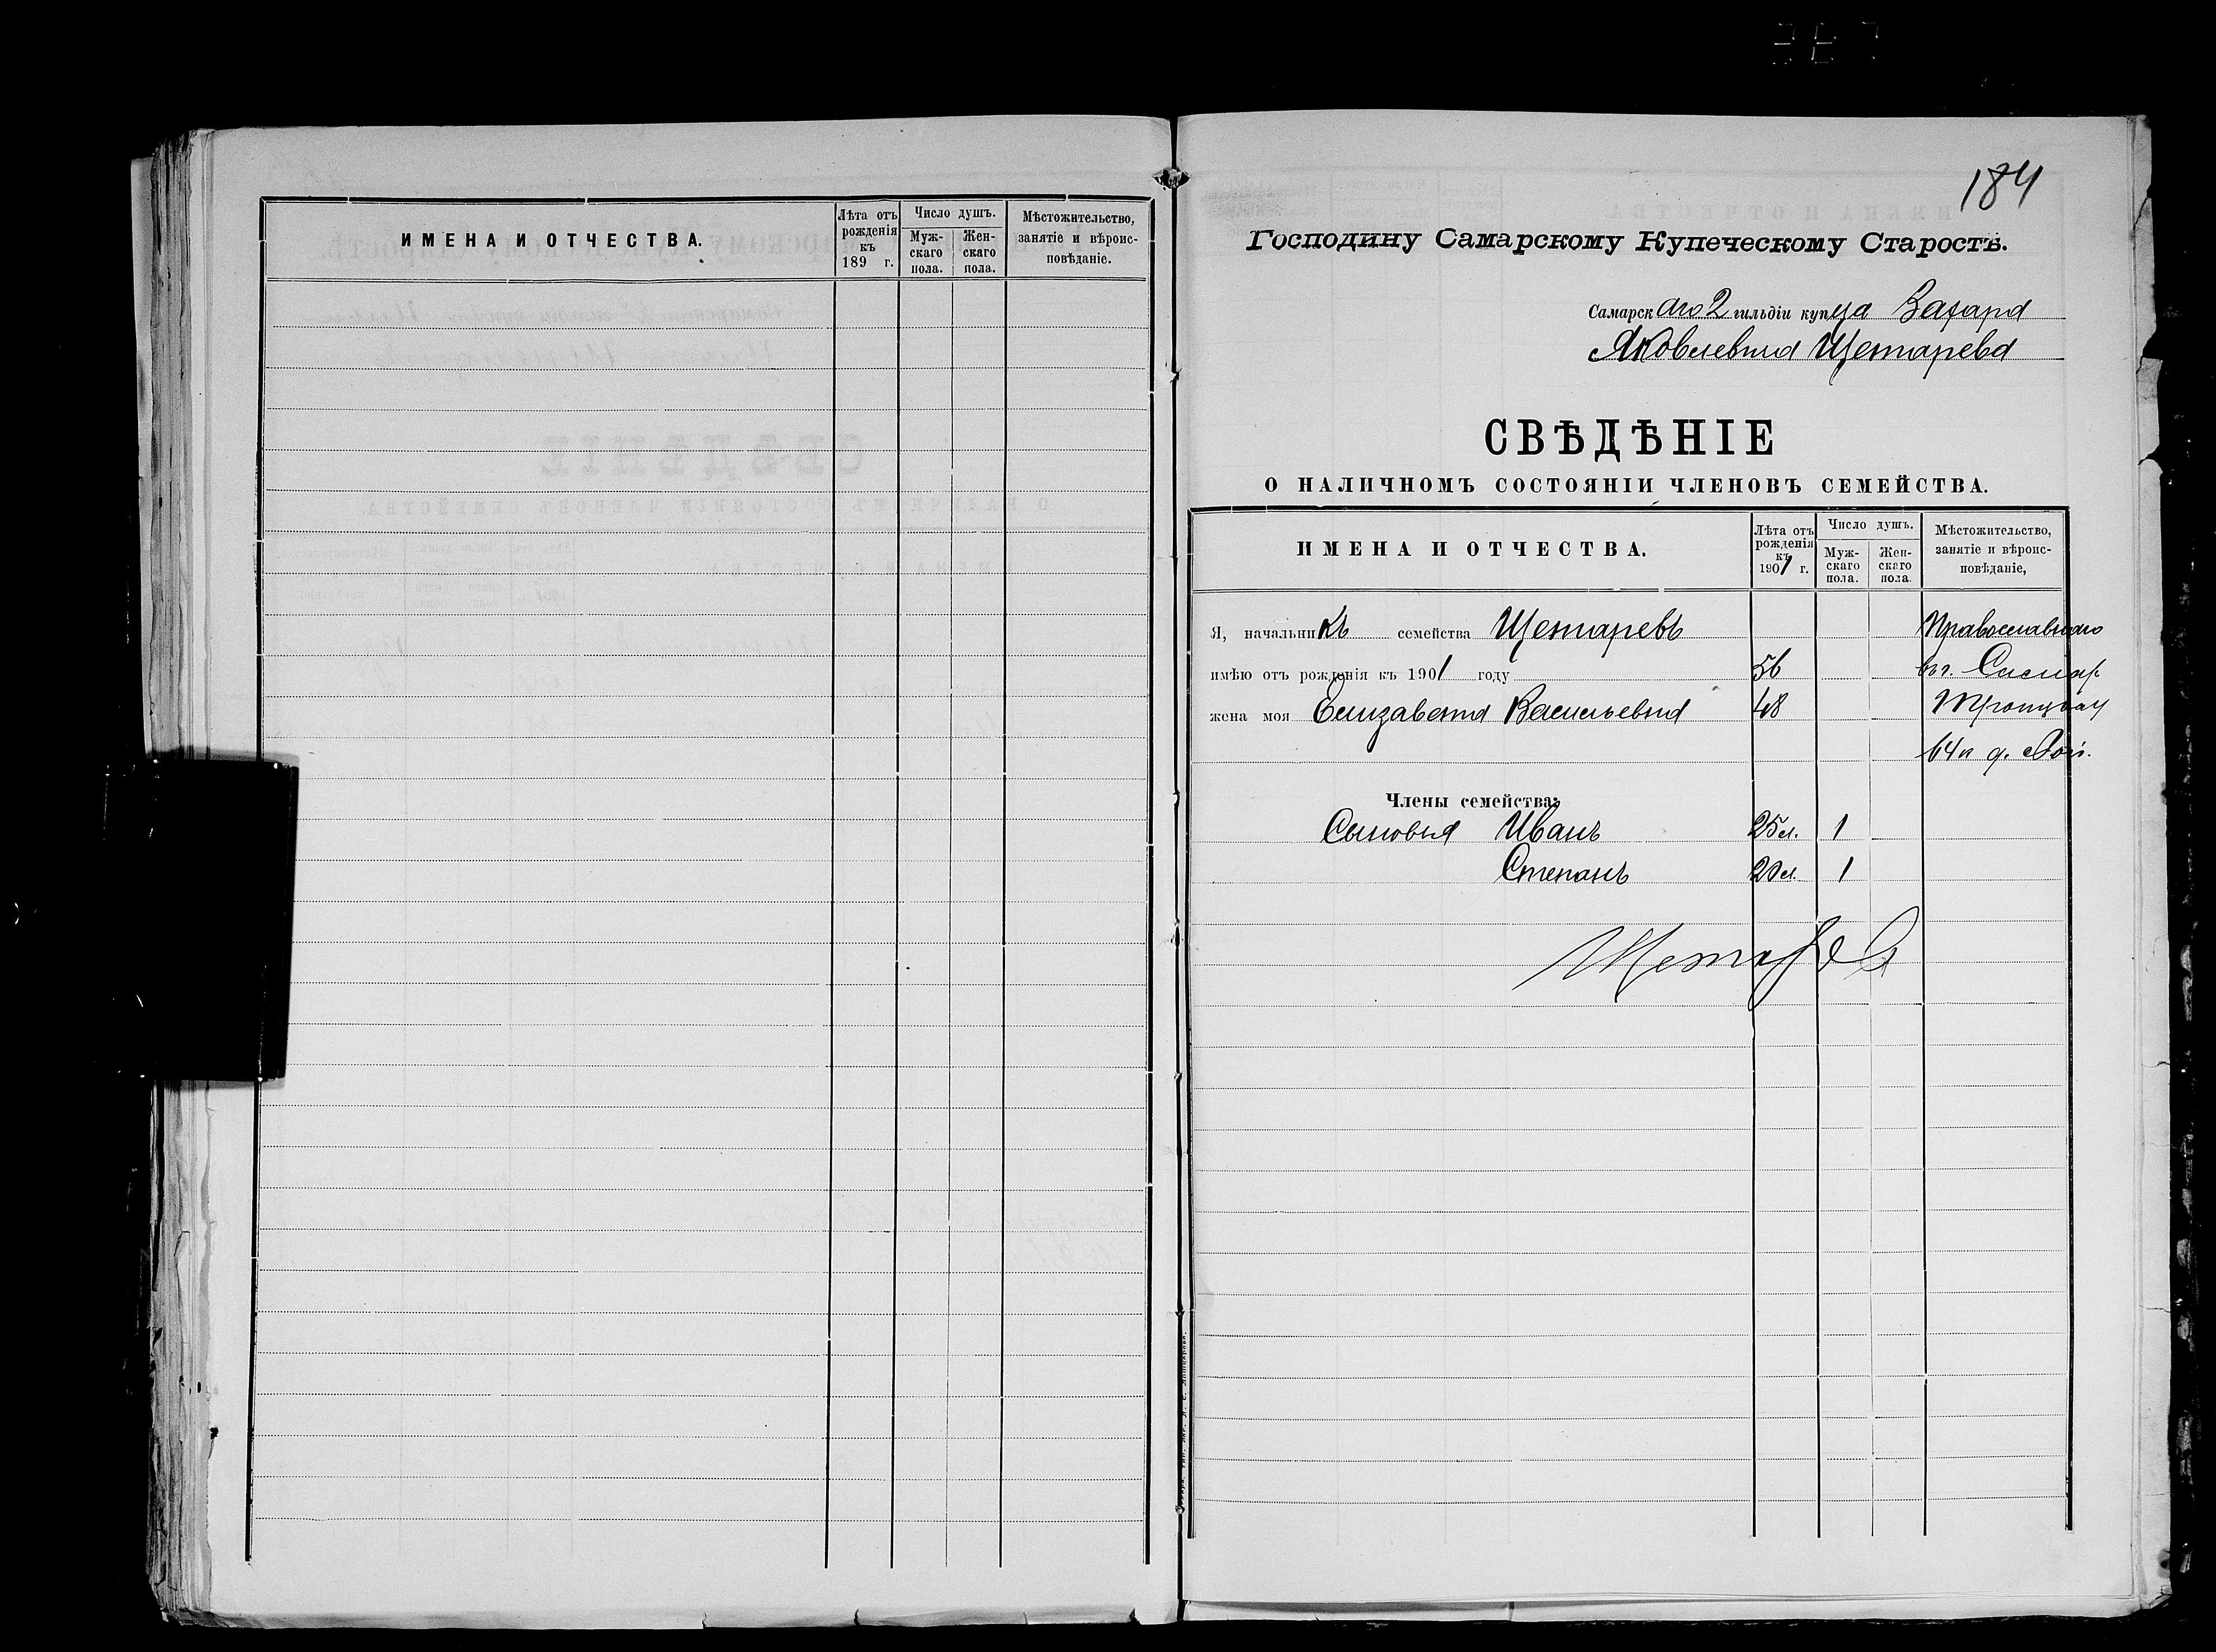 ИМЕНА И ОТЧЕСТВА.
Лѣта отъ рожденія къ 189 г.
Число душъ.
Муж- скаго пола.
Жен- скаго пола.
Мѣстожительство, занятіе и вѣроис- повѣданіе.
184
Господину Самарскому Купеческому Старостѣ.
Самарскаго 2 гильдіи купца Захара
Яковлевича Щетарева
СВѢДѢНІЕ
О НАЛИЧНОМЪ СОСТОЯНІИ ЧЛЕНОВЪ СЕМЕЙСТВА.
ИМЕНА И ОТЧЕСТВА.
Лѣта отъ рожденія къ 1901 г.
Число душъ.
Муж- скаго пола.
Жен- скаго пола.
Мѣстожительство, занятіе и вѣроис- повѣданіе,
Я, начальникъ семейства Щетаревъ Православнаго
имѣю отъ рожденія къ 1901 году 56 въ г.
жена моя Елизавета Васильевна 48
Члены семейства:
Сыновья Иванъ 25 л. 1
Степанъ 20 л. 1